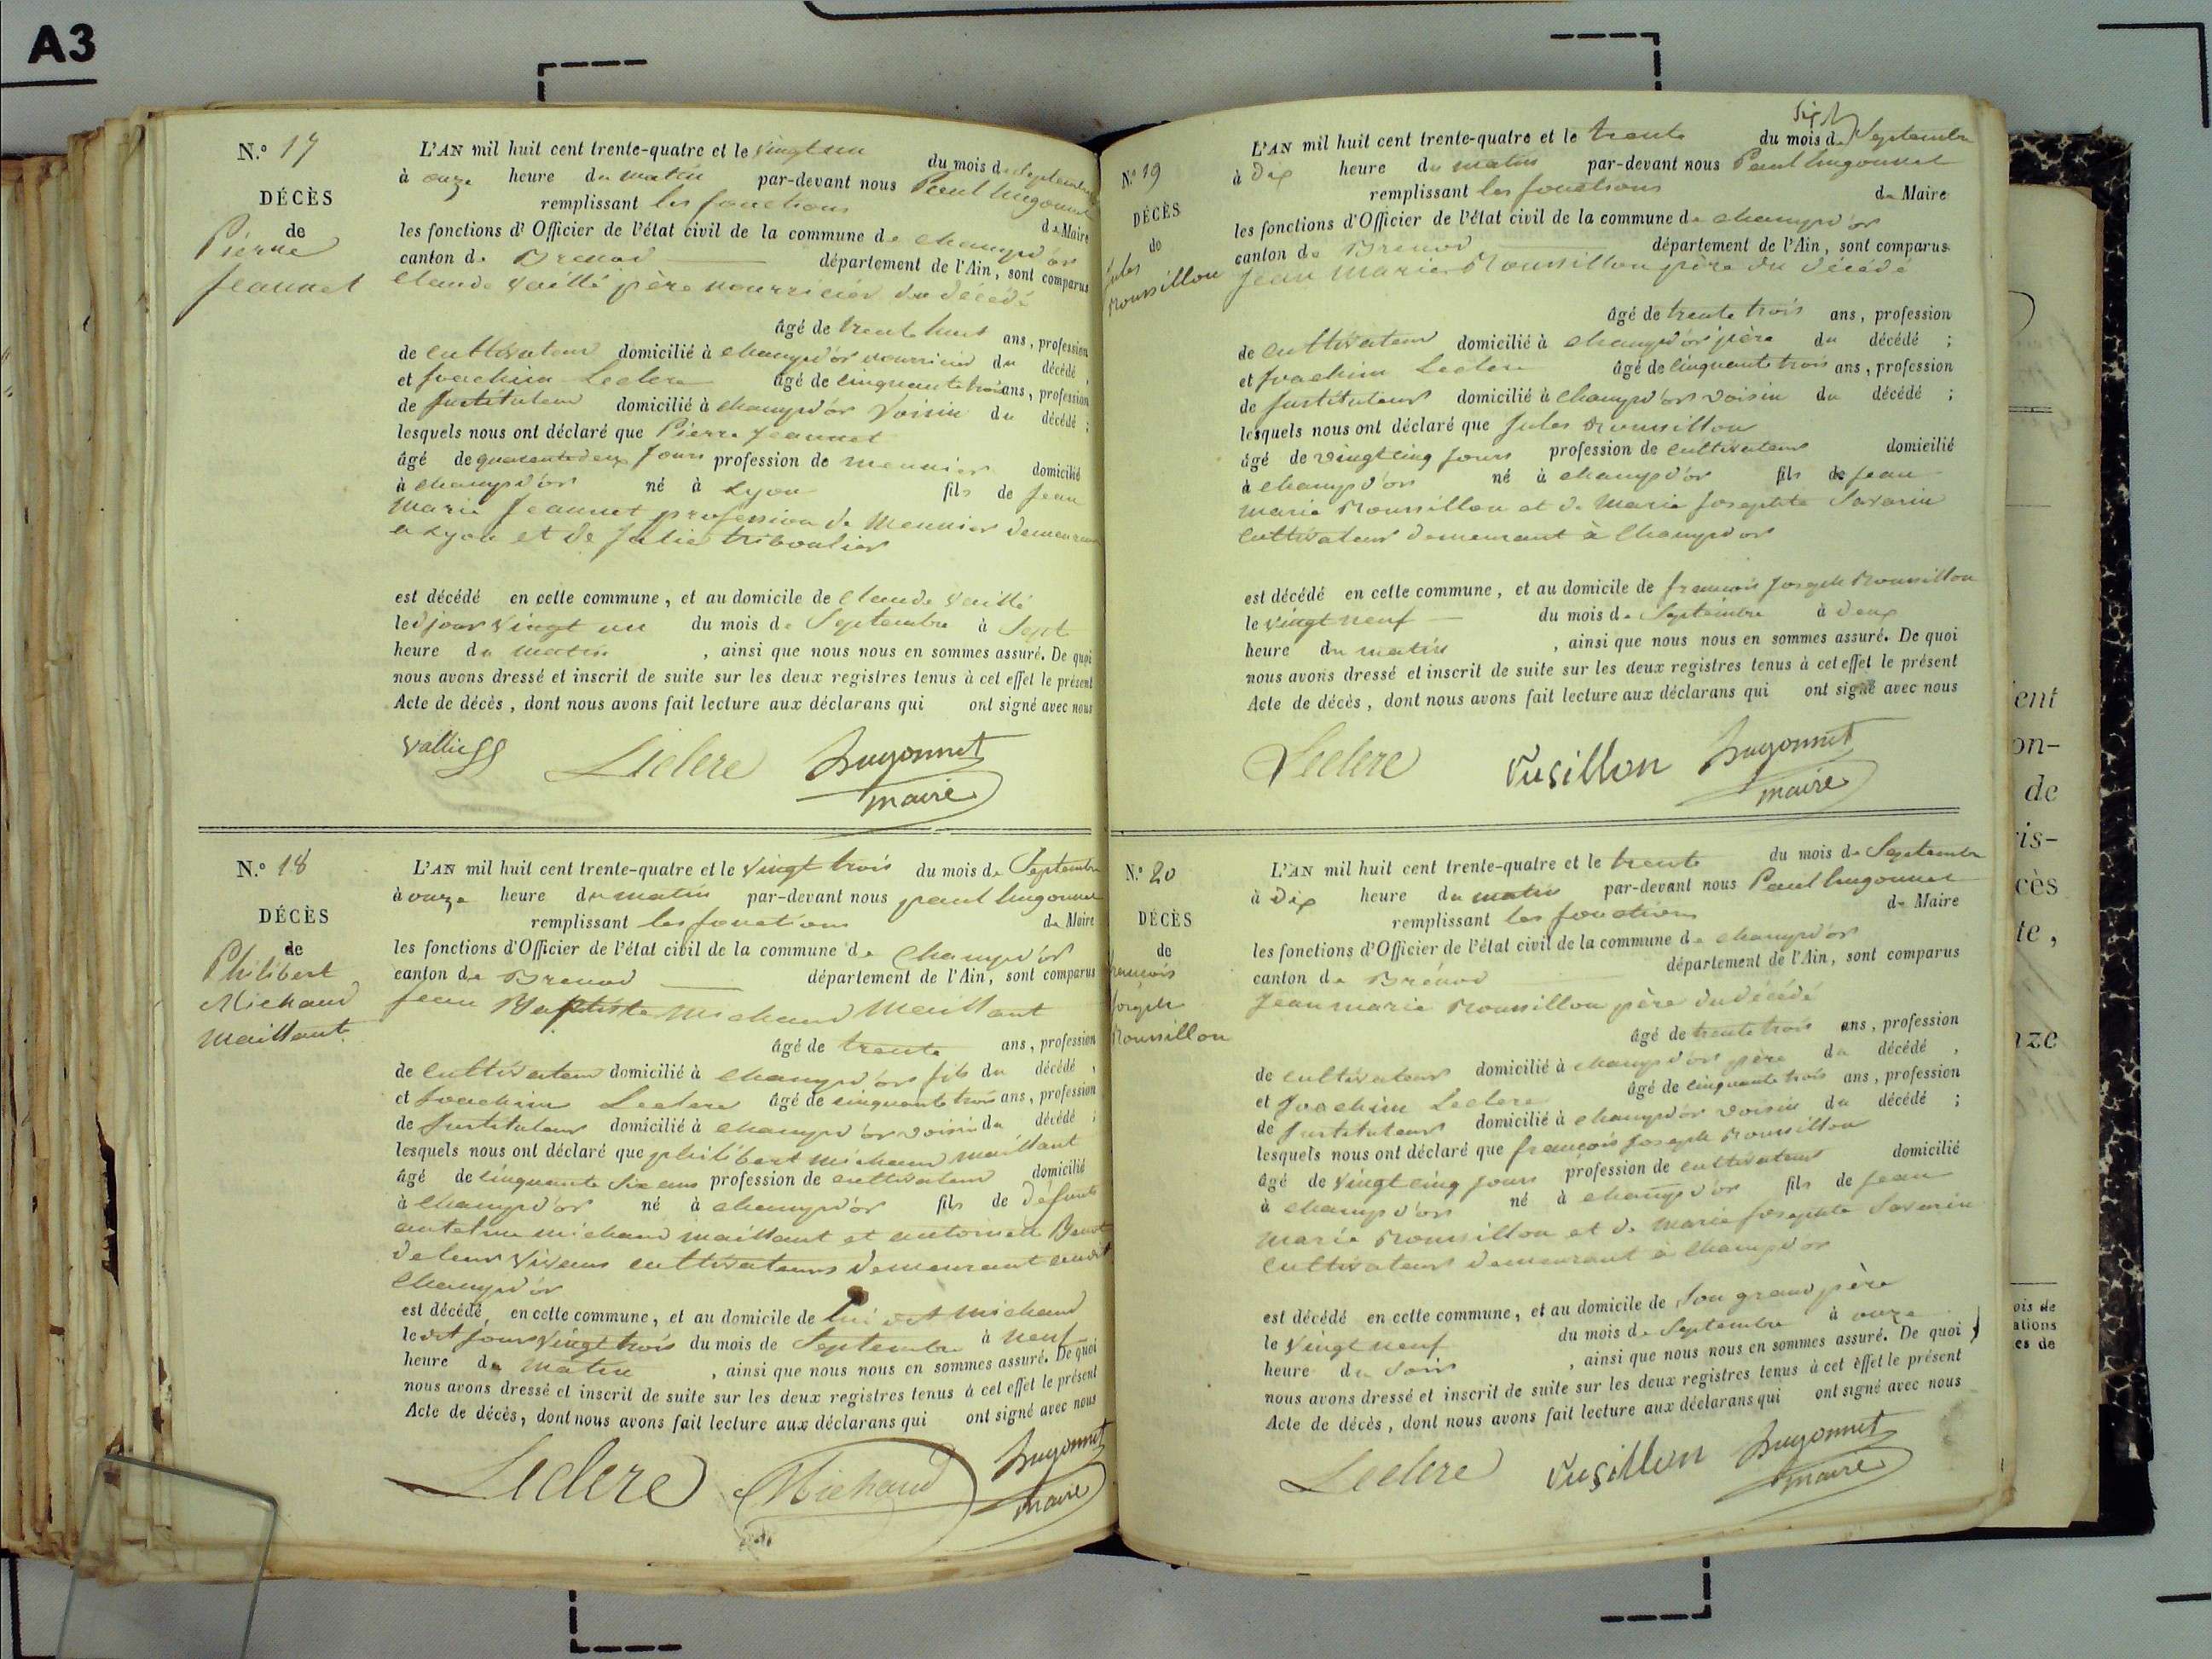 A3
N.º 17
DÉCÈS
de
Pierre
Jeannet
L'AN mil huit cent trente-quatre et le vingt un du mois de Septembre
à onze heure du matin par-devant nous Paul hugonnet
remplissant les fonctions de Maire
les fonctions d'Officier de l'état civil de la commune de champd'or
canton de Brenod département de l'Ain, sont comparus
Claude Vaillé père nourricier du décédé
âgé de trente huit ans, profession
de cultivateur domicilié à champd'or nourricier du décédé ;
et Joachim Leclere âgé de cinquante trois ans, profession
de Instituteur domicilié à champd'or voisin du décédé ;
lesquels nous ont déclaré que Pierre Jeannet
âgé de quarante deux jours profession de meunier domicilié
à champd'or né à Lyon fils de Jean
Marie Jeannet profession de Meunier demeurant
a Lyon et de Julie triboulier
est décédé en cette commune, et au domicile de Claude Vaillé
le d jour vingt un du mois de Septembre à Sept
heure du matin , ainsi que nous nous en sommes assuré. De quoi
nous avons dressé et inscrit de suite sur les deux registres tenus à cet effet le présent
Acte de décès, dont nous avons fait lecture aux déclarans qui ont signé avec nous
Leclere hugonnet
maire
N.º 18
DÉCÈS
de
Philibert
Michaud
Maillant
L'AN mil huit cent trente-quatre et le vingt trois du mois de Septembre
à onze heure du matin par-devant nous paul hugonnet
remplissant les fonctions de Maire
les fonctions d'Officier de l'état civil de la commune de Champd'or
canton de Brenod département de l'Ain, sont comparus
Jean Baptiste Michaud Maillant
âgé de trente ans, profession
de cultivateur domicilié à champd'or fils du décédé ,
et Joachim Leclere âgé de cinquante trois ans, profession
de Instituteur domicilié à champd'or voisin du décédé ;
lesquels nous ont déclaré que philibert michaud maillant
âgé de cinquante six ans profession de cultivateur domicilié
à champd'or né à champd'or fils de défunts
antelme michaud maillant et antoinette
de leur vivans cultivateurs demeurant audit
Champd'or
est décédé en cette commune, et au domicile de lui dit Michaud
le dit jour vingt trois du mois de Septembre à neuf
heure du matin , ainsi que nous nous en sommes assuré. De quoi
nous avons dressé et inscrit de suite sur les deux registres tenus à cet effet le présent
Acte de décès, dont nous avons fait lecture aux déclarans qui ont signé avec nous
Leclere Michaud hugonnet
maire
N.º 19
DÉCÈS
de
Jules
Roussillon
L'AN mil huit cent trente-quatre et le trente du mois de Septembre
à dix heure du matin par-devant nous Paul hugonnet
remplissant les fonctions de Maire
les fonctions d'Officier de l'état civil de la commune de champd'or
canton de Brenod département de l'Ain, sont comparus
Jean Marie Roussillon père du décédé
âgé de trente trois ans, profession
de cultivateur domicilié à champd'or père du décédé ;
et Joachim Leclere âgé de cinquante trois ans, profession
de Instituteur domicilié à champd'or voisin du décédé ;
lesquels nous ont déclaré que Jules Roussillon
âgé de vingt cinq jours profession de cultivateur domicilié
à champd'or né à champd'or fils de Jean
Marie Roussillon et de Marie Josephte Savarin
Cultivateur demeurant à Champd'or
est décédé en cette commune, et au domicile de francois Joseph Roussillon
le vingt neuf du mois de Septembre à deux
heure du matin , ainsi que nous nous en sommes assuré. De quoi
nous avons dressé et inscrit de suite sur les deux registres tenus à cet effet le présent
Acte de décès, dont nous avons fait lecture aux déclarans qui ont signé avec nous
Leclere rusillon hugonnet
maire
N.º 20
DÉCÈS
de
francois
Joseph
Roussillon
L'AN mil huit cent trente-quatre et le trente du mois de Septembre
à dix heure du matin par-devant nous Paul hugonnet
remplissant les fonctions de Maire
les fonctions d'Officier de l'état civil de la commune de champd'or
canton de Brénod département de l'Ain, sont comparus
Jean marie Roussillon père du décédé
âgé de trente trois ans, profession
de cultivateur domicilié à champd'or père du décédé ,
et Joachim Leclere âgé de cinquante trois ans, profession
de Instituteur domicilié à champd'or voisin du décédé ;
lesquels nous ont déclaré que françois Joseph Roussillon
âgé de vingt cinq jours profession de cultivateur domicilié
à champd'or né à champd'or fils de Jean
Marie Roussillon et de Marie Josephte Savarin
Cultivateur demeurant à Champd'or
est décédé en cette commune, et au domicile de Son grand père
le vingt neuf du mois de Septembre à onze
heure du Soir , ainsi que nous nous en sommes assuré. De quoi
nous avons dressé et inscrit de suite sur les deux registres tenus à cet effet le présent
Acte de décès, dont nous avons fait lecture aux déclarans qui ont signé avec nous
Leclere rusillon hugonnet
maire